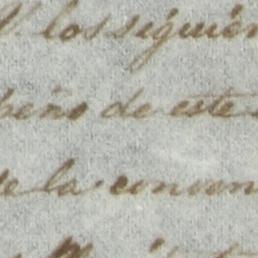 V. los siguien
peño de este
de la comun